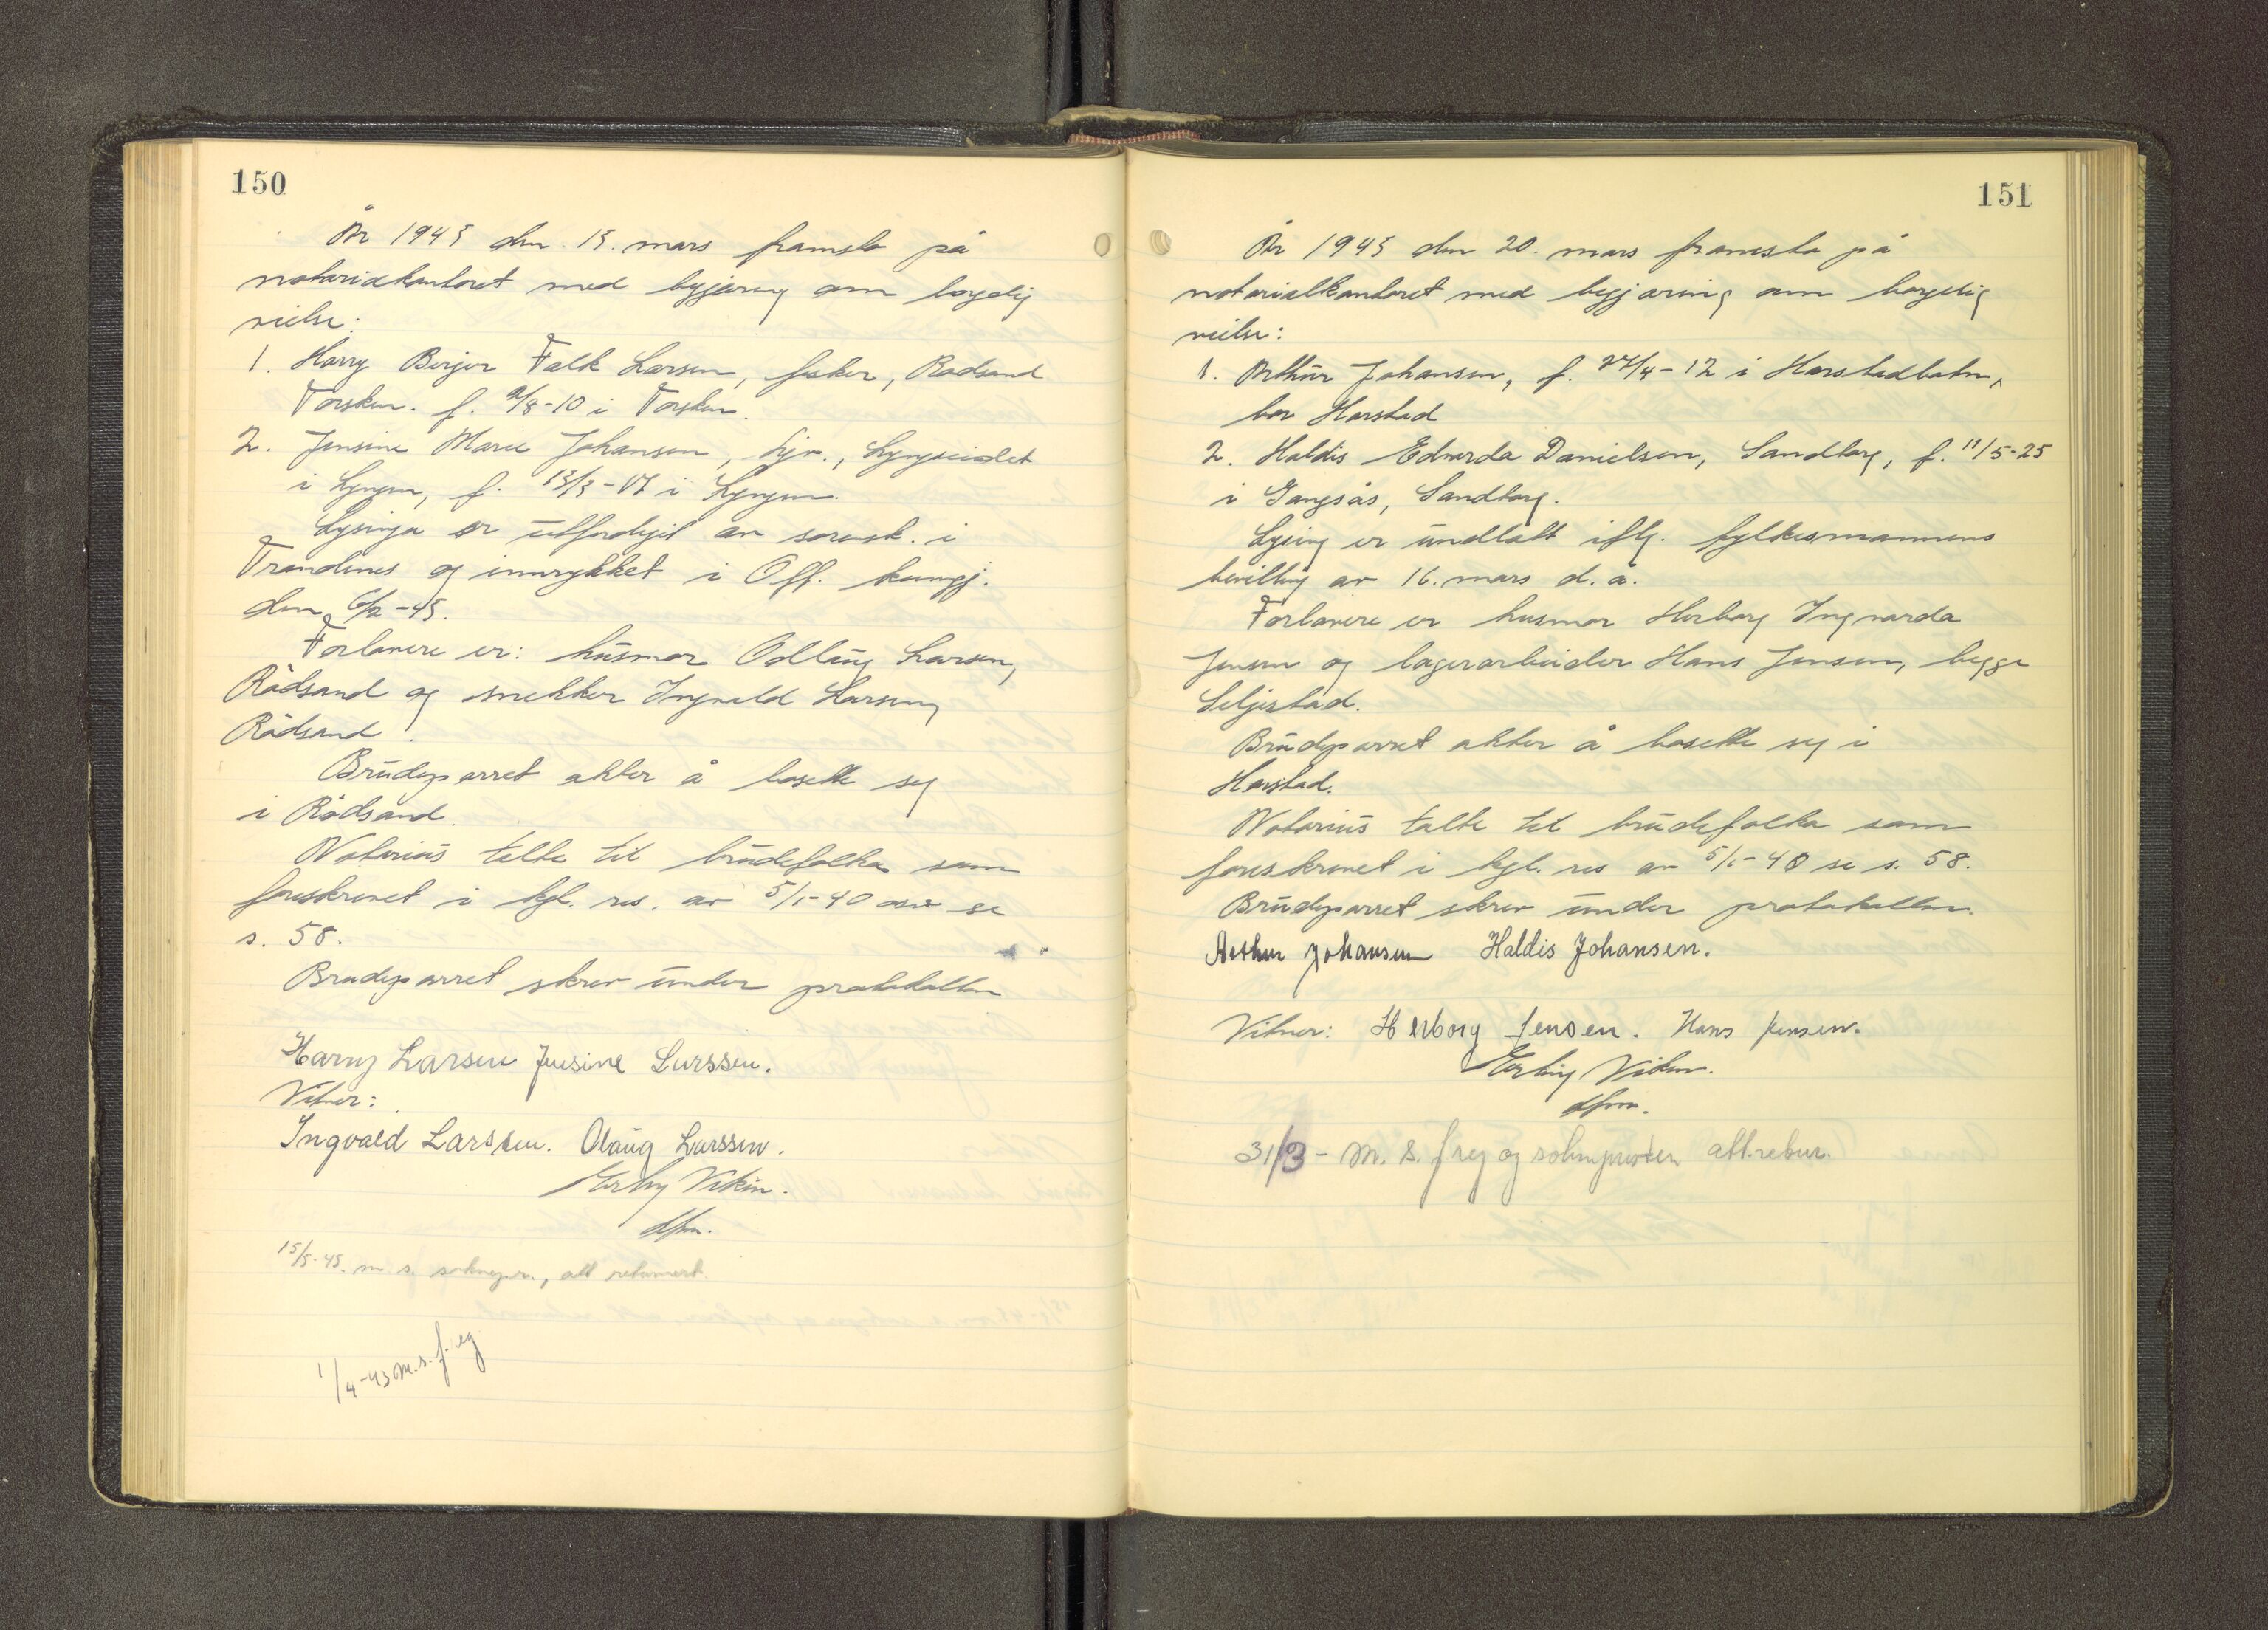 150
År 1943 den 15. mars framsto på
notarialkontoret med begjæring om borgelig
vielse:
1. Harry Berger Falk Larsen, fisker, Rødsand
Torsken. f. 9/8-10 i Torsken.
2. Jensine Marie Johansen, hjv., Lyngseidet
i Lyngen, f. 13/3-17 i Lyngen.
Lysinga er utferdiget av sorensk. i
Trondenes og innrykket i Off. kungj.
den 6/2-43.
Forlovere er: husmor Odlaug Larsen,
Rødsand og snekker Ingvald Larsen,
Rødsand.
Brudeparret akter å bosette seg
i Rødsand.
Notarius talte til brudefolka som
foreskrevet i kgl. res. av 5/1-40 se
s. 58.
Brudeparret skrev under protokollen
Harry Larsen Jensine Larssen.
Vitner:
Ingvald Larssen. Olaug Larssen.
Erling Viken.
dfm.
15/5-43. m. s. soknepr., att returnert.
1/4-43 m.s. f. reg
151
År 1943 den 20. mars framsto på
notarialkontoret med begjæring om borgelig
vielse:
1. Arthur Johansen, f. 27/4-12 i Harstadbotn,
bor Harstad
2. Haldis Edvarda Danielsen, Sandtorg, f. 11/5-25
i Gangsås, Sandtorg.
Lysing er undlatt iflg. fylkesmannens
bevilling av 16. mars d. å.
Forlovere er husmor Herborg Ingvarda
Jensen og lagerarbeider Hans Jensen, begge
Seljestad.
Brudeparret akter å bosette seg i
Harstad.
Notarius talte til brudefolka som
foreskrevet i kgl. res av 5/1-40 se s. 58.
Brudeparret skrev under protokollen.
Arthur Johansen Haldis Johansen.
Vitner: Herborg Jensen. Hans Jensen.
Erling Viken.
dfm.
31/3 - m. s. freg og soknepresten att.retur.